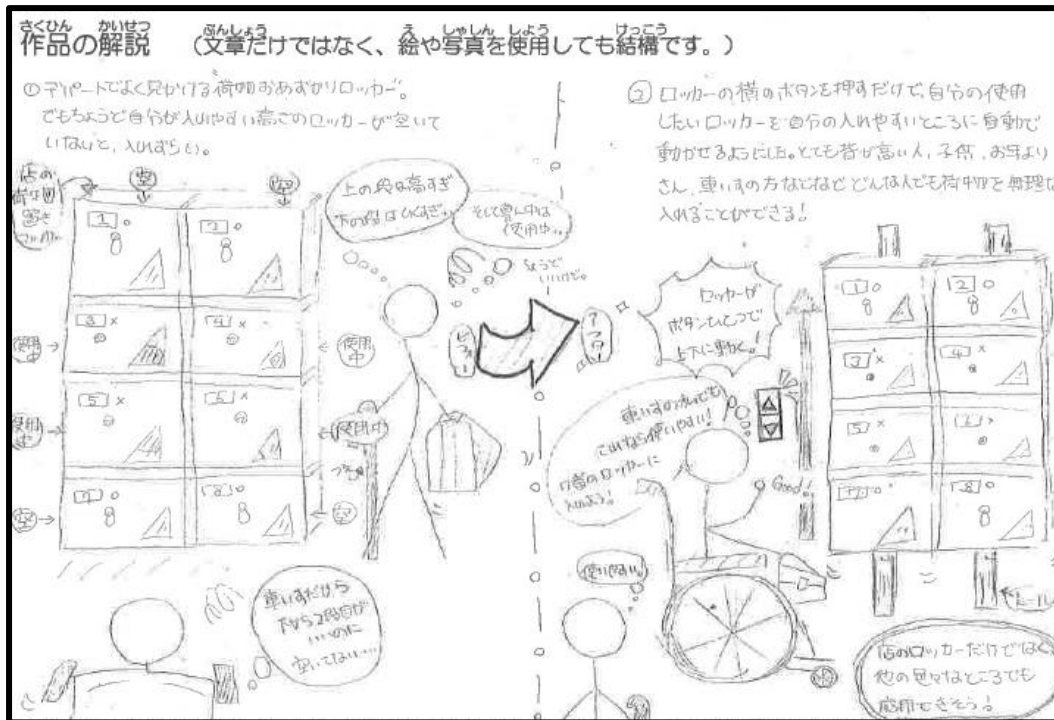 さくひん かいせつ ぶんしょう え しゃしん しよう けっこう
作品の解説 (文章だけではなく、絵や写真を使用しても結構です。)
①デパートでよく見かける荷物おあずかりロッカー。
でもちょうど自分が入れやすい高さのロッカーが空いて
いないと、入れずらい。
空
空
1 ○
2 ○
3 ×
4 ×
5 ×
6 ×
7 ○
8 ○
使用中
使用中
使用中
使用中
空
空
上の段は高すぎ
下の段はひくすぎ…
そして真ん中は
使用中…
ちょうど
いいけど。
つえ
車いすだから
下から2段目が
いいのに
空いてない…
ビフォー
アフター
② ロッカーの横のボタンを押すだけで、自分の使用
したいロッカーを自分の入れやすいところに自動で
動かせるようにした。とても背が高い人、子供、お年より
さん、車いすの方などなど どんな人でも荷物を無理せ
入れることができる!
ロッカーが
ボタンひとつで
上下に動く!
▲
▼
車いすの方でも
これなら使いやすい!
7番のロッカーに
入れよう!
Good!
使いやすい。
1 ○
2 ○
3 ×
4 ×
5 ×
6 ×
7 ○
8 ○
レール
店のロッカーだけでなく
他の色々なところでも
応用できそう!